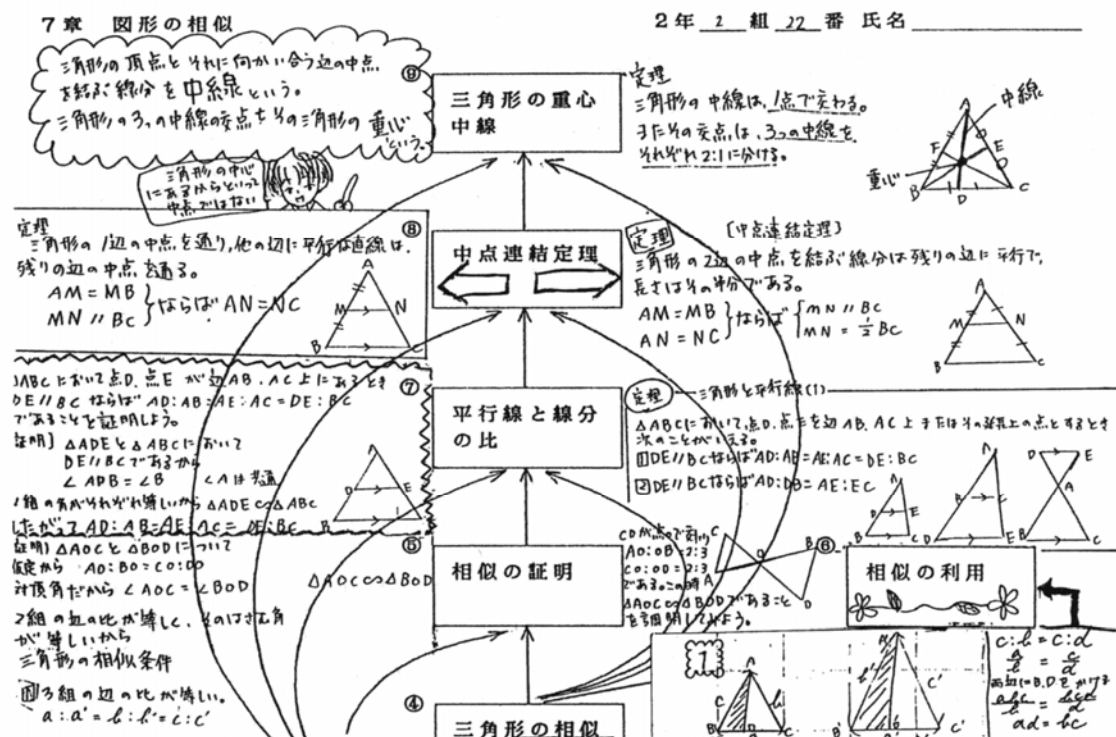 7章 図形の相似
2年 2 組 22 番 氏名
三角形の頂点とそれに向かい合う辺の中点
を結ぶ線分を中線という。
三角形の3つの中線の交点をその三角形の重心
という。
三角形の中心
にあるからといって
中点ではない
⑨
三角形の重心
中線
定理
三角形の中線は、1点で交わる。
またその交点は、3つの中線を
それぞれ2:1に分ける。
中線
重心
A
F
E
B
D
C
定理
三角形の1辺の中点を通り、他の辺に平行な直線は、
残りの辺の中点を通る。
AM=MB
MN//BC
ならばAN=NC
A
M
N
B
C
⑧
中点連結定理
定理
[中点連結定理]
三角形の2辺の中点を結ぶ線分は残りの辺に平行で、
長さはその半分である。
AM=MB
AN=NC
ならば
MN//BC
MN=1/2BC
A
M
N
B
C
ABCにおいて点D、点Eが辺AB、AC上にあるとき
DE//BCならばAD:AB=AE:AC=DE:BC
であることを証明しよう。
証明] △ADEと△ABCにおいて
DE//BCであるから
∠ADB=∠B ∠Aは共通
組の角がそれぞれ等しいから △ADE∽△ABC
したがってAD:AB=AE:AC=DE:BC
A
D
E
B
⑦
平行線と線分
の比
定理
三角形と平行線(1)
△ABCにおいて、点D、点Eを辺AB、AC上またはその延長上の点とするとき
次のことがいえる。
1 DE//BCならばAD:AB=AE:AC=DE:BC
2 DE//BCならばAD:DB=AE:EC
A
D
E
B
C
A
B
C
D
E
D
E
A
B
C
証明) △AOCと△BODについて
仮定から AO:BO=CO:DO
対頂角だから ∠AOC=∠BOD
2組の辺の比が等しく、そのはさむ角
が等しいから
△AOC∽△BOD
三角形の相似条件
1 3組の辺の比が等しい。
a:a'=b:b'=c:c'
⑤
相似の証明
AO:OB=2:3
CO:OD=2:3
である。この時
△AOC∽△BODであること
を証明してみよう。
C
B
O
A
D
⑥
相似の利用
④
三角形の相似
1
A
c
b
B
C
b'
c'
C'
c:b=c:d
a/b=c/d
両辺にB,Dをかける
ad=bc